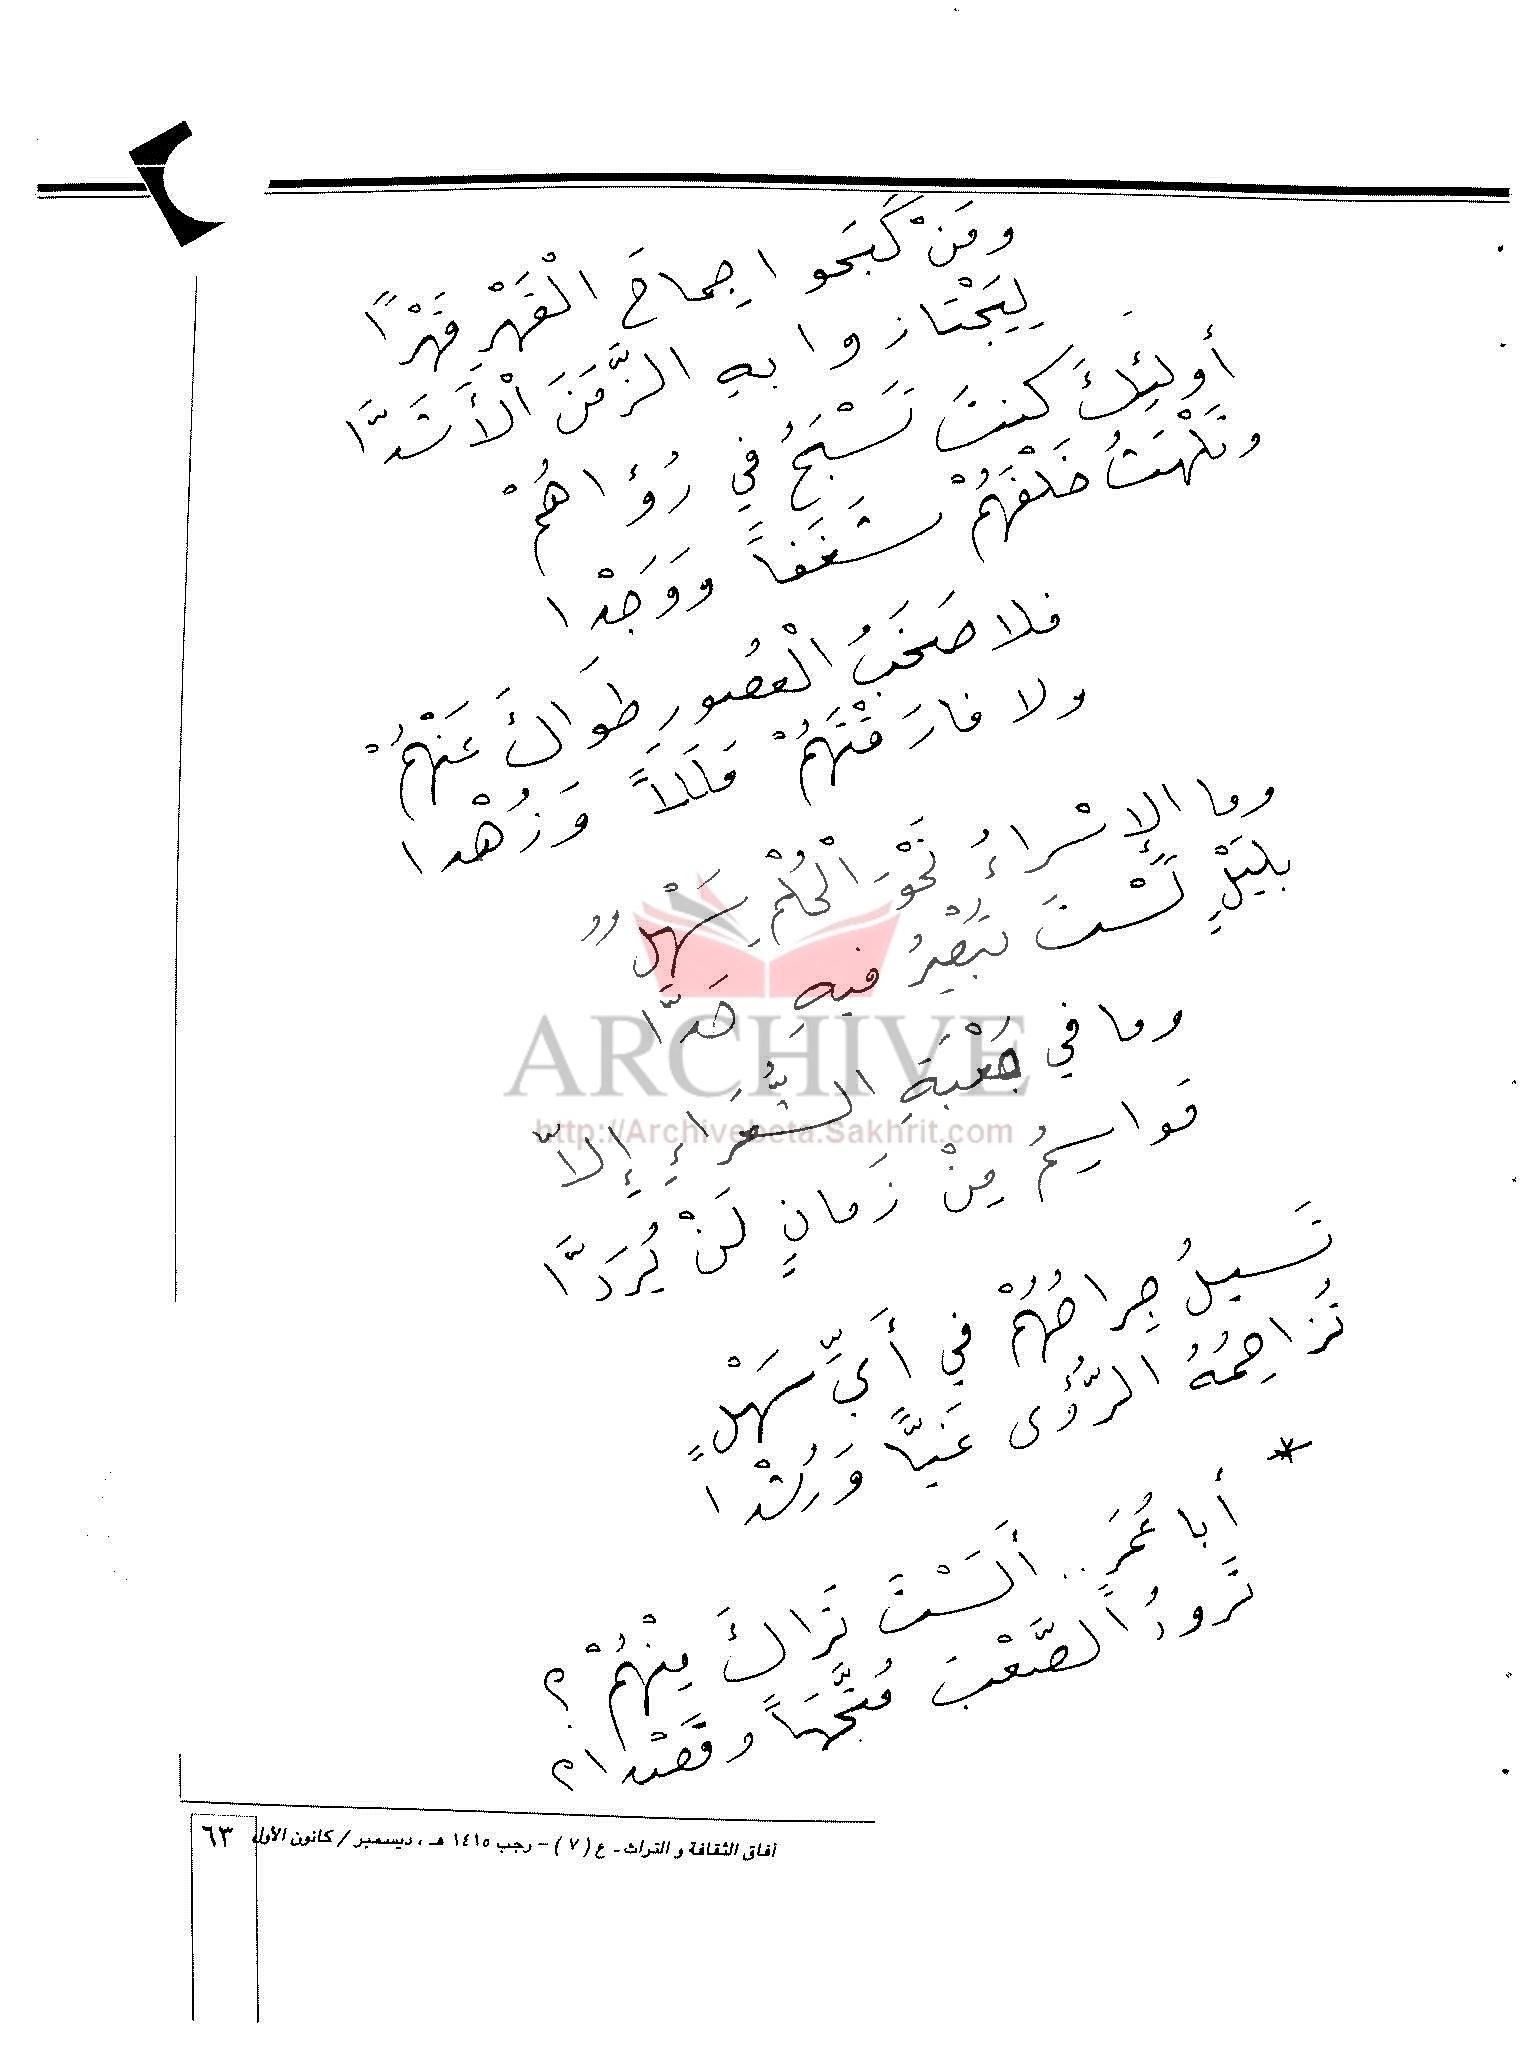 ومَنْ كَبَحوا جِماحَ الْقَهْرِ قَهْرًا
لِيَجْتازوا بهِ الزَّمَنَ الْأَشَدَّا
أولئِكَ كنتَ تَسْبَحُ في رُؤاهُمْ
وتَلْهَثُ خَلْفَهُمْ شَغَفاً وَوَجْدا
فلا صَخَبُ الْعُصورِ طَوَاكَ عَنْهُمْ
ولا فارَقْتَهُمْ مَلَلاً وَزُهْدا
وما الإسْراءُ نَحْوَ الْحُلْمِ سَهْلٌ
بلَيْلٍ لَسْتَ تُبْصِرُ فيهِ حَدَّا
وما في جَعْبَةِ الشُّعَراءِ إلاّ
مَواسِمُ مِنْ زَمانٍ لَنْ يُرَدَّا
تَسيلُ جِراحُهُمْ في أَيِّ سَهْلٍ
تُزاحِمُهُ الرُّؤى غَيًّا وَرُشْدا
*
أبا عُمَرٍ.. أَلَسْتَ تَرَاكَ مِنْهُمْ؟
تَرودُ الصَّعْبَ مُتَّجَهاً وقَصْدا؟
آفاق الثقافة و التراث - ع (٧) - رجب ١٤١٥ هـ ، ديسمبر / كانون الأول ٦٣
ARCHIVE
http://Archivebeta.Sakhrit.com